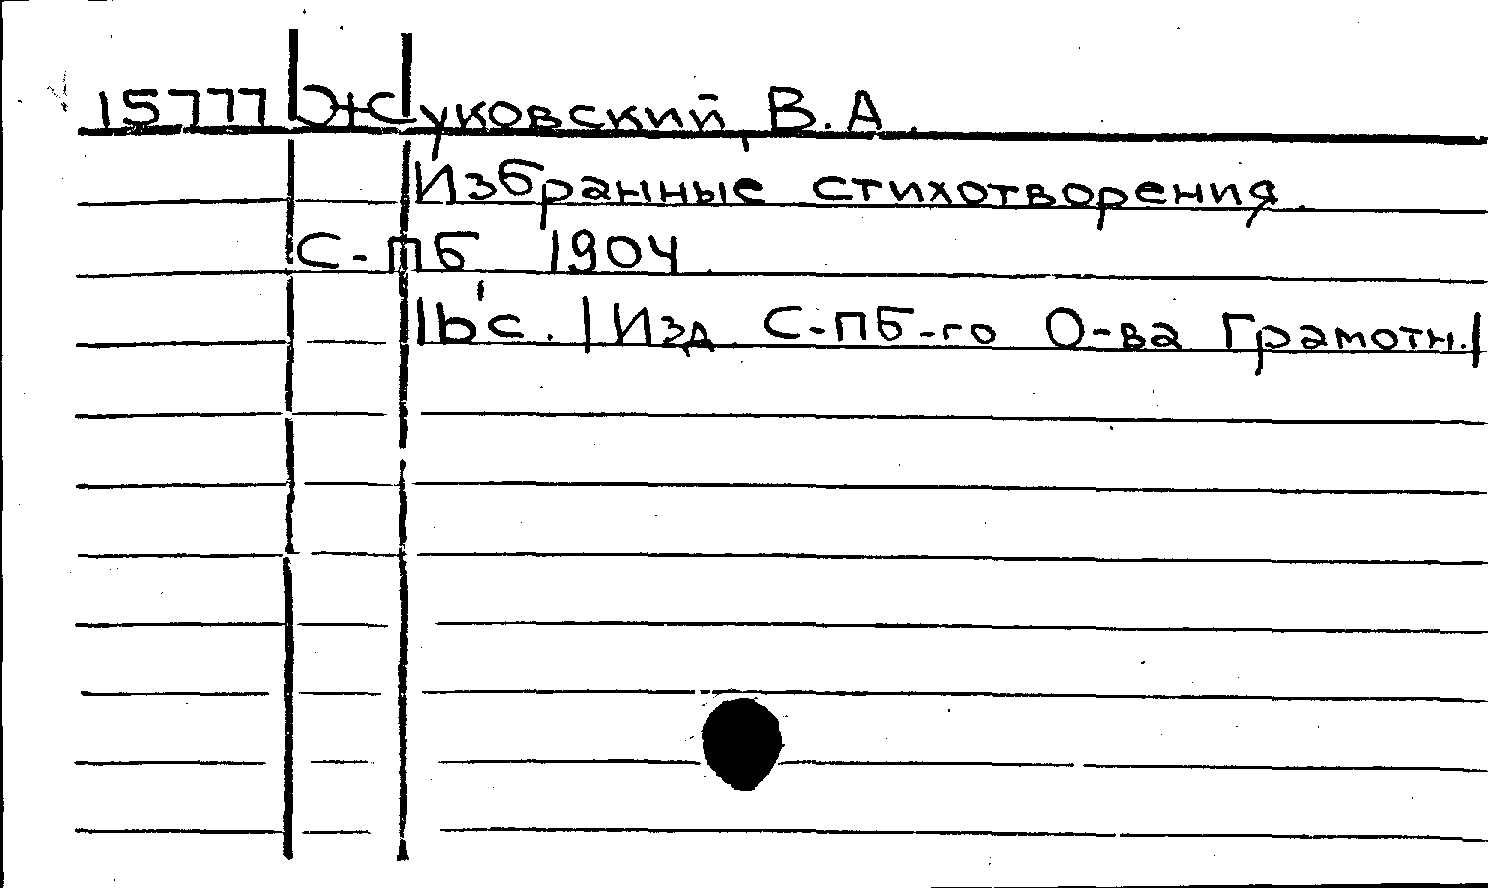 15777 Жуковский, В.А.
Избранные стихотворения.
С-ПБ 1904.
1b'с. /Изд. С-ПБ-го О-ва Грамотн./